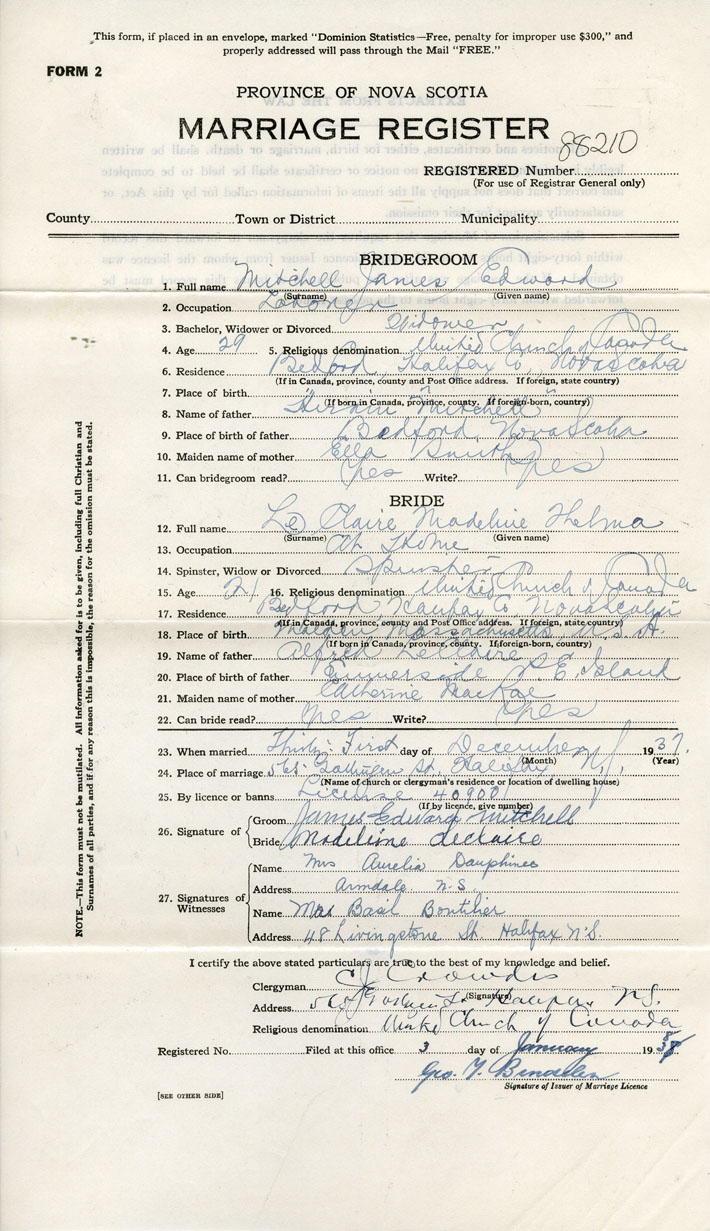 This form, if placed in an envelope, marked "Dominion Statistics—Free, penalty for improper use $300," and
properly addressed will pass through the Mail "FREE."
FORM 2
PROVINCE OF NOVA SCOTIA
MARRIAGE REGISTER
88210
REGISTERED Number
(For use of Registrar General only)
County Town or District Municipality
BRIDEGROOM
1. Full name Mitchell James Edward
(Surname) (Given name)
2. Occupation Labourer
3. Bachelor, Widower or Divorced Widower
4. Age 29 5. Religious denomination United Church of Canada
6. Residence Bedford, Halifax Co Nova Scotia
(If in Canada, province, county and Post Office address. If foreign, state country)
7. Place of birth
(If born in Canada, province, county. If foreign-born, country)
8. Name of father Hiram Mitchell
9. Place of birth of father Bedford, Nova Scotia
10. Maiden name of mother Ella Smith
11. Can bridegroom read? yes Write? yes
BRIDE
12. Full name Le Claire Madeline Thelma
(Surname) (Given name)
13. Occupation At Home
14. Spinster, Widow or Divorced Spinster
15. Age 21 16. Religious denomination United Church of Canada
17. Residence Bedford Halifax Co Nova Scotia
(If in Canada, province, county and Post Office address. If foreign, state country)
18. Place of birth Malden Massachusetts U.S.A.
(If born in Canada, province, county. If foreign-born, country)
19. Name of father Alfred LeClaire
20. Place of birth of father Summerside P.E. Island
21. Maiden name of mother Catherine MacRae
22. Can bride read? yes Write? yes
23. When married Thirty-First day of December 1937
(Month) (Year)
24. Place of marriage St, Halifax N.S.
(Name of church or clergyman's residence or location of dwelling house)
25. By licence or banns License 40900
(If by licence, give number)
26. Signature of
Groom James Edward Mitchell
Bride Madelione Leclaire
27. Signatures of Witnesses
Name Mrs Aurelia Dauphinee
Address Armdale N.S.
Name Mrs Basil Boutilier
Address 48 Livingstone St. Halifax N.S.
I certify the above stated particulars are true to the best of my knowledge and belief.
Clergyman C J Crowdis
(Signature)
Address St Halifax, N.S.
Religious denomination United Church of Canada
Registered No. Filed at this office 3 day of January 1938
Geo.
Signature of Issuer of Marriage Licence
[SEE OTHER SIDE]
NOTE.—This form must not be mutilated. All information asked for is to be given, including full Christian and
Surnames of all parties, and if for any reason this is impossible, the reason for the omission must be stated.